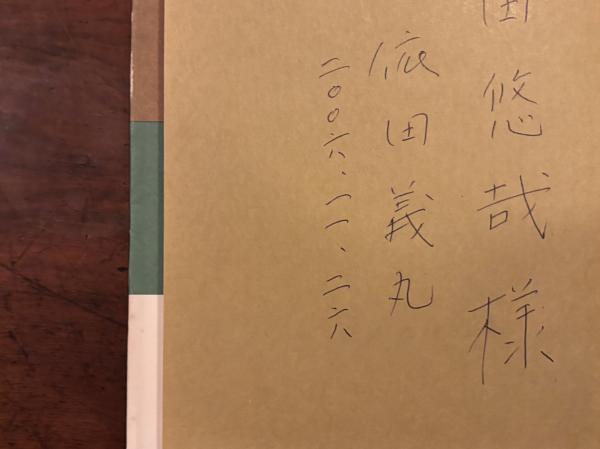 田悠哉様
依田義丸
二〇〇六・一一・二六